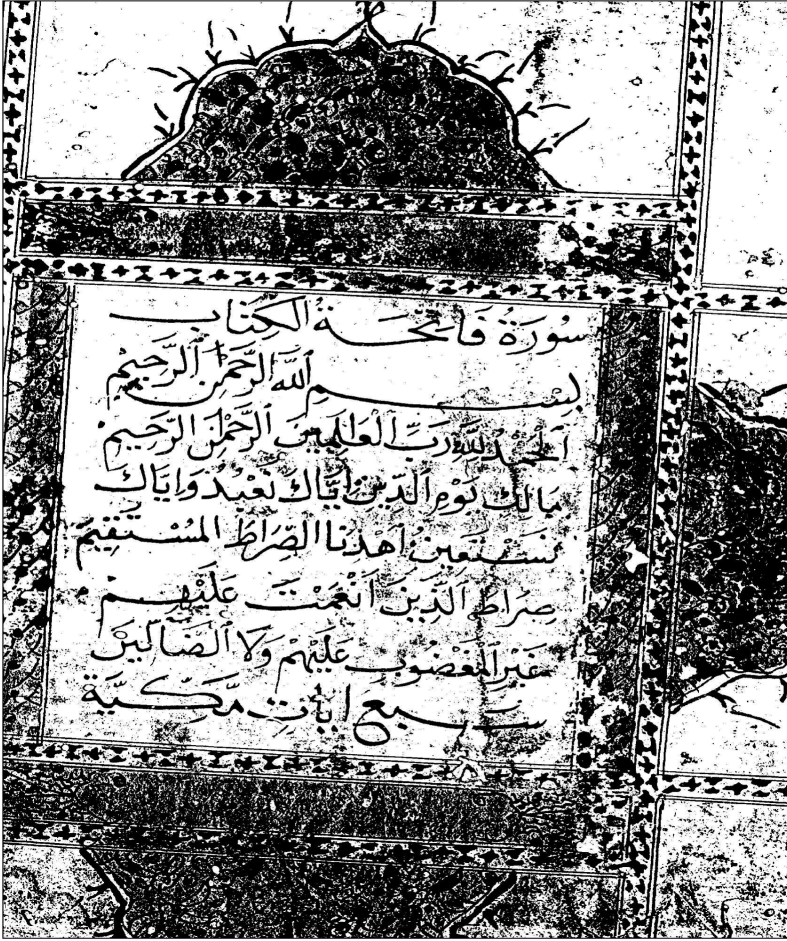 سُورَةُ فَاتِحَةُ الْكِتَاب
بِسْمِ اللَّهِ الرَّحْمٰنِ الرَّحِيمِ
اَلْحَمْدُ لِلّٰهِ رَبِّ الْعَالَمِينَ الرَّحْمٰنِ الرَّحِيمِ
مَالِكِ يَوْمِ الدِّينِ اِيَّاكَ نَعْبُدُ وَاِيَّاكَ
نَسْتَعِينُ اهْدِنَا الصِّرَاطَ الْمُسْتَقِيمَ
صِرَاطَ الَّذِينَ اَنْعَمْتَ عَلَيْهِمْ
غَيْرِ الْمَغْضُوبِ عَلَيْهِمْ وَلَا الضَّالِّينَ
سَبعُ ايَاتٍ مَّكِّيَّة